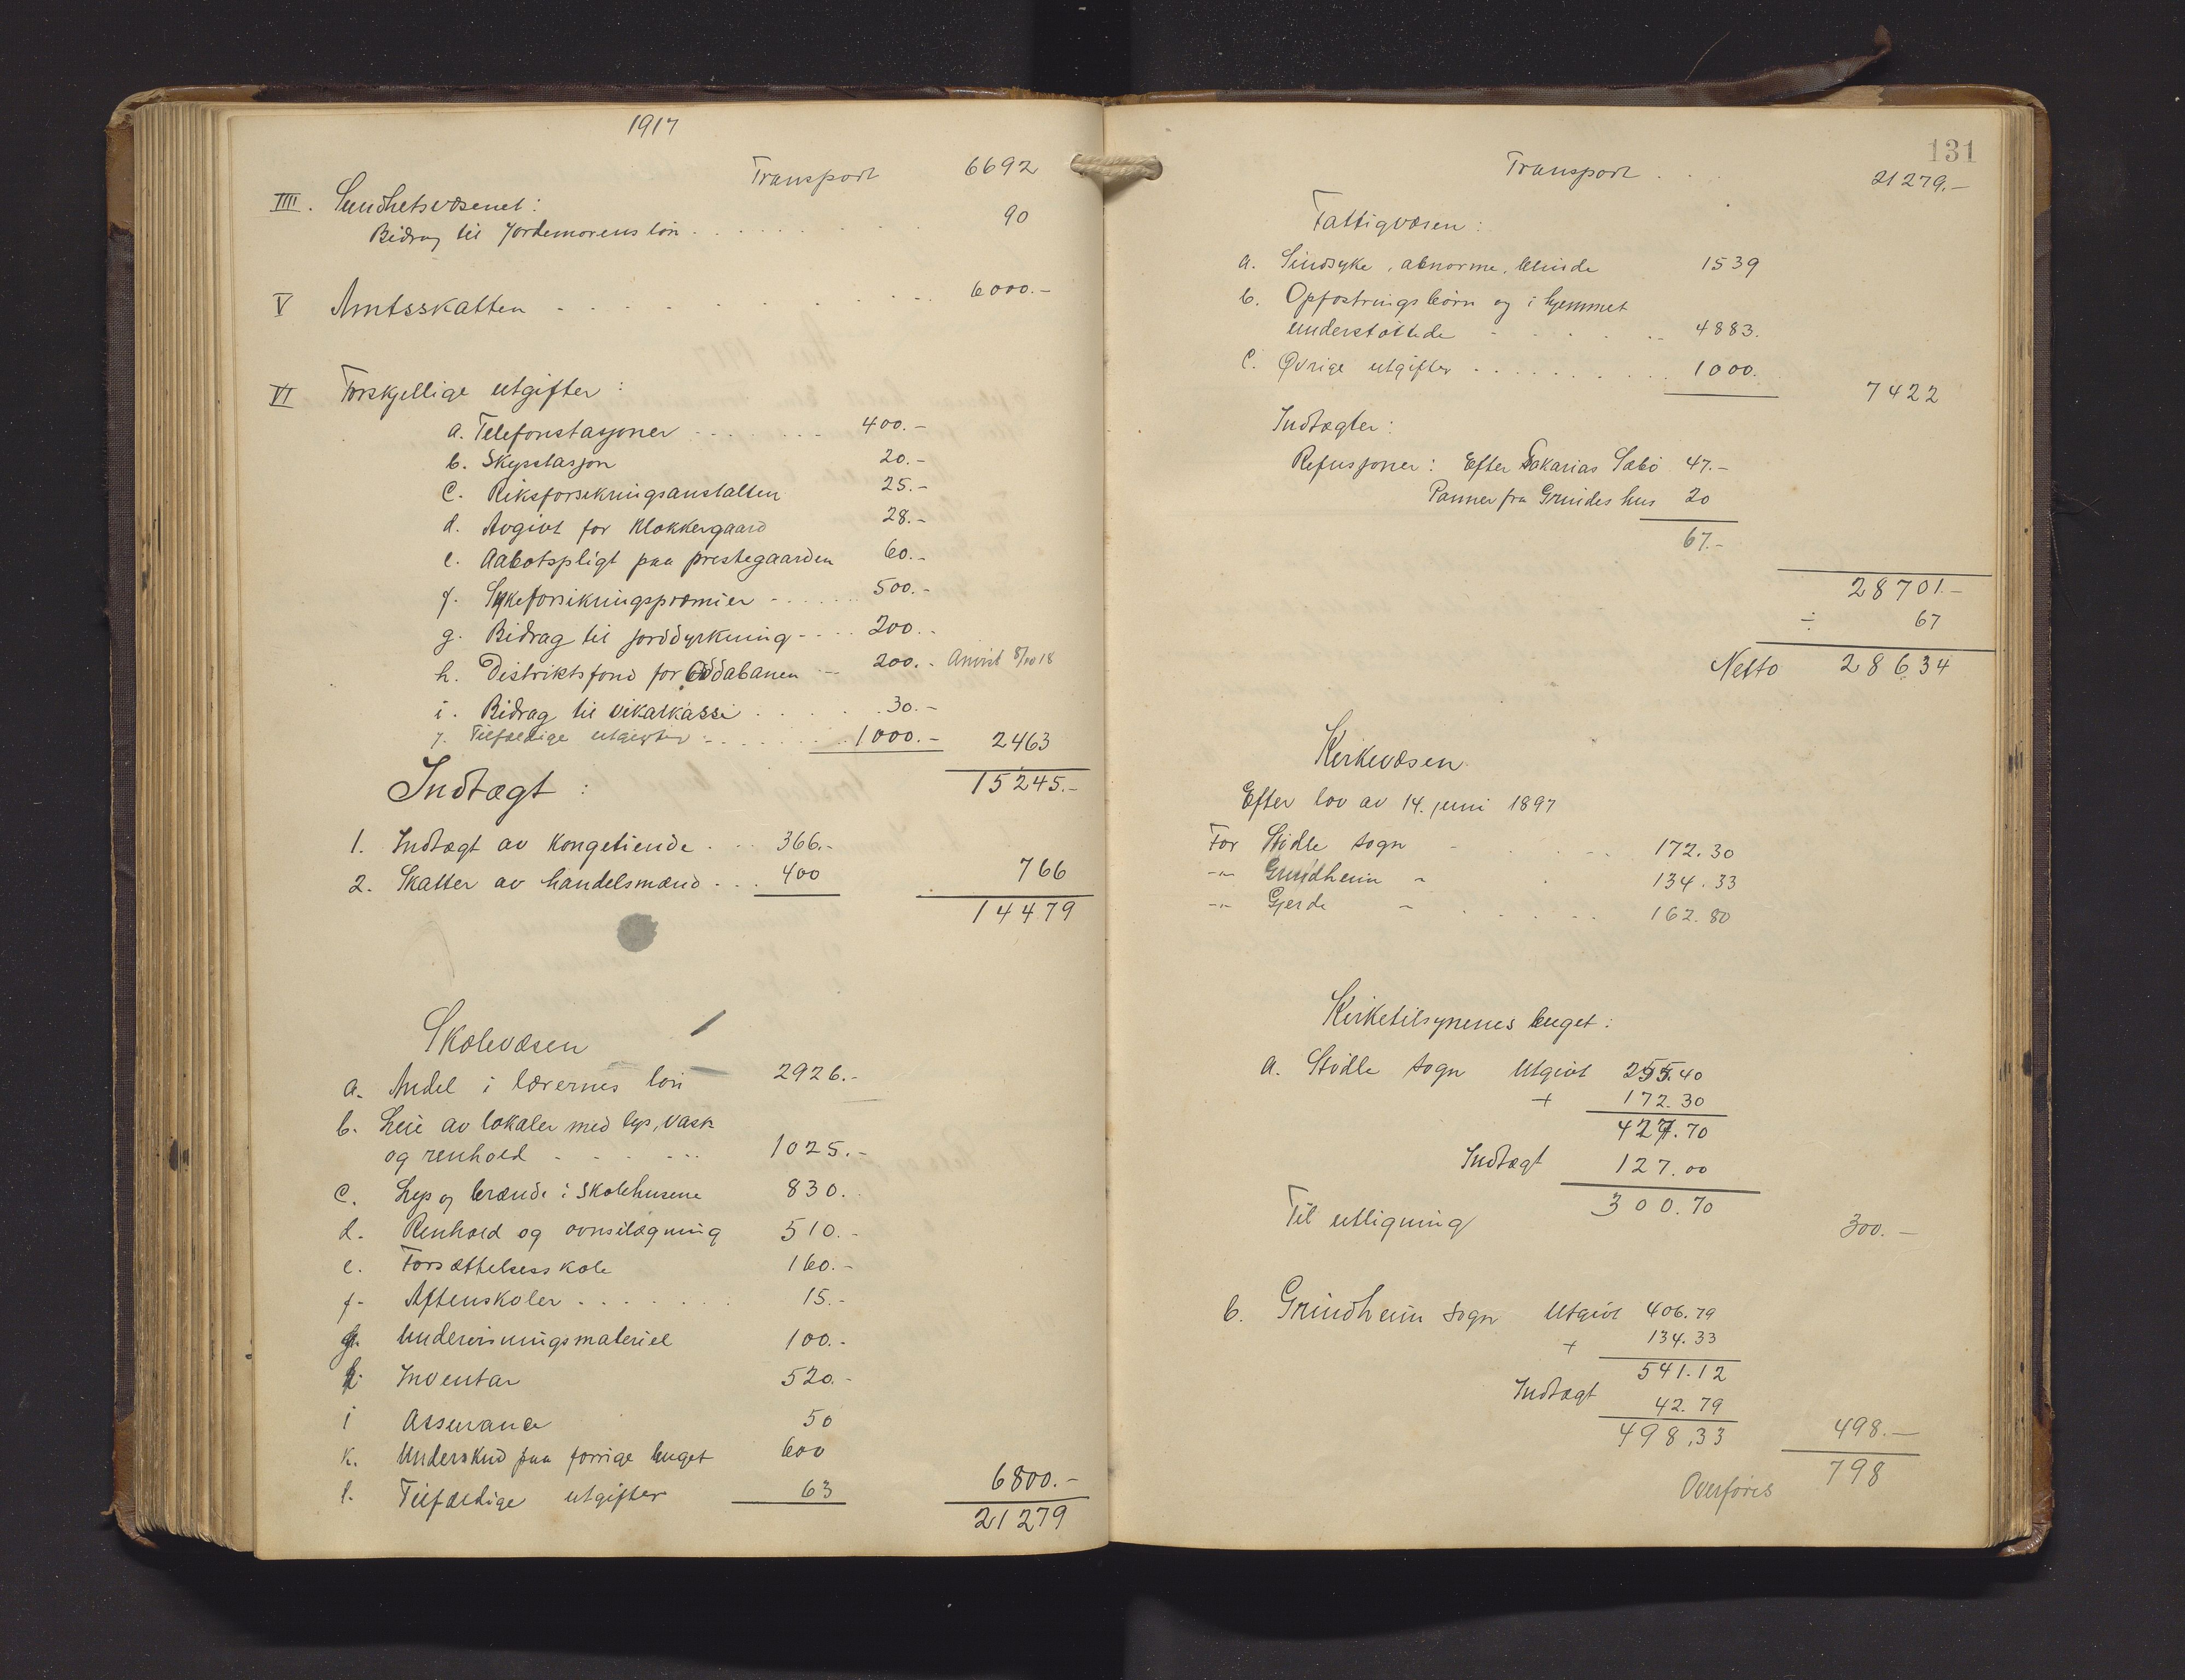 1917
Transport 6692
IIII. Sundhetsvæsenet:
Bidrag til Jordemorens løn . . . . . . . . 90
V Amtsskatten - - - - - - - - - 6000.-
VI Forskjellige utgifter:
a. Telefonstasjoner - - - - - - - 400.-
b. Skysstasjon 20.-
c. Riksforsikringsanstalten 25.-
d. Avgivt for Klokkergaard 28.-
e. Aabotspligt paa prestegaarden 60.-
f. Sykeforsikringspræmier - . . . . . 500.-
g. Bidrag til jorddyrkning - - . . 200.-
h. Distriktsfond for Oddabanen -- 200.- Anvist 8/10 18
i. Bidrag til vikarkasse . . . . . . 30.-
j. Tilfældige utgifter - . . . . . . . 1000.- 2463
15245.-
Indtægt:
1. Indtægt av Kongetiende . - - 366.-
2. Skatter av handelsmænd . . . 400 766
14479
Skolevæsen
a. Andel i lærernes løn 2926.-
b. Leie av lokaler med lys, vask
og renhold - - - - - - 1025.-
c. Lys og brænde i Skolehusene 830.
d. Renhold og ovnsilægning 510.-
e. Forsættelsesskole 160.-
f- Aftenskoler . . . . . . . 15.-
g. Undervisningsmateriel 100.-
h. Inventar 520.-
i Assurance 50
k. Underskud paa forrige buget 600
l. Tilfældige utgifter 63 6800.-
21279
131
Transport . . . 21279.-
Fattigvæsen:
a. Sindsyke, abnorme, blinde 1539
b. Opfostringsbørn og i hjemmet
understøttede - - - - -- 4883.
c. Øvrige utgifter . . . . . . . . . 1000.
7422
Indtægter:
Refusjoner: Efter Sakarias Sæbø 47.-
Panner fra Grindes hus 20
67.-
28701.-
÷ 67
Netto 28634
Kirkevæsen
Efter lov av 14. juni 1897
For Stødle sogn - . . . -- 172.30
-"- Grindheim - . 134.33
-"- Gjerde - . . . . -- 162.80
Kirketilsynenes buget:
a. Stødle sogn Utgivt 255.40
+ 172.30
427.70
Indtægt 127.00
300.70
Til utligning 300.-
b. Grindheim sogn Utgivt 406.79
+ 134.33
541.12
Indtægt 42.79
498,33 498.-
798
Overføres